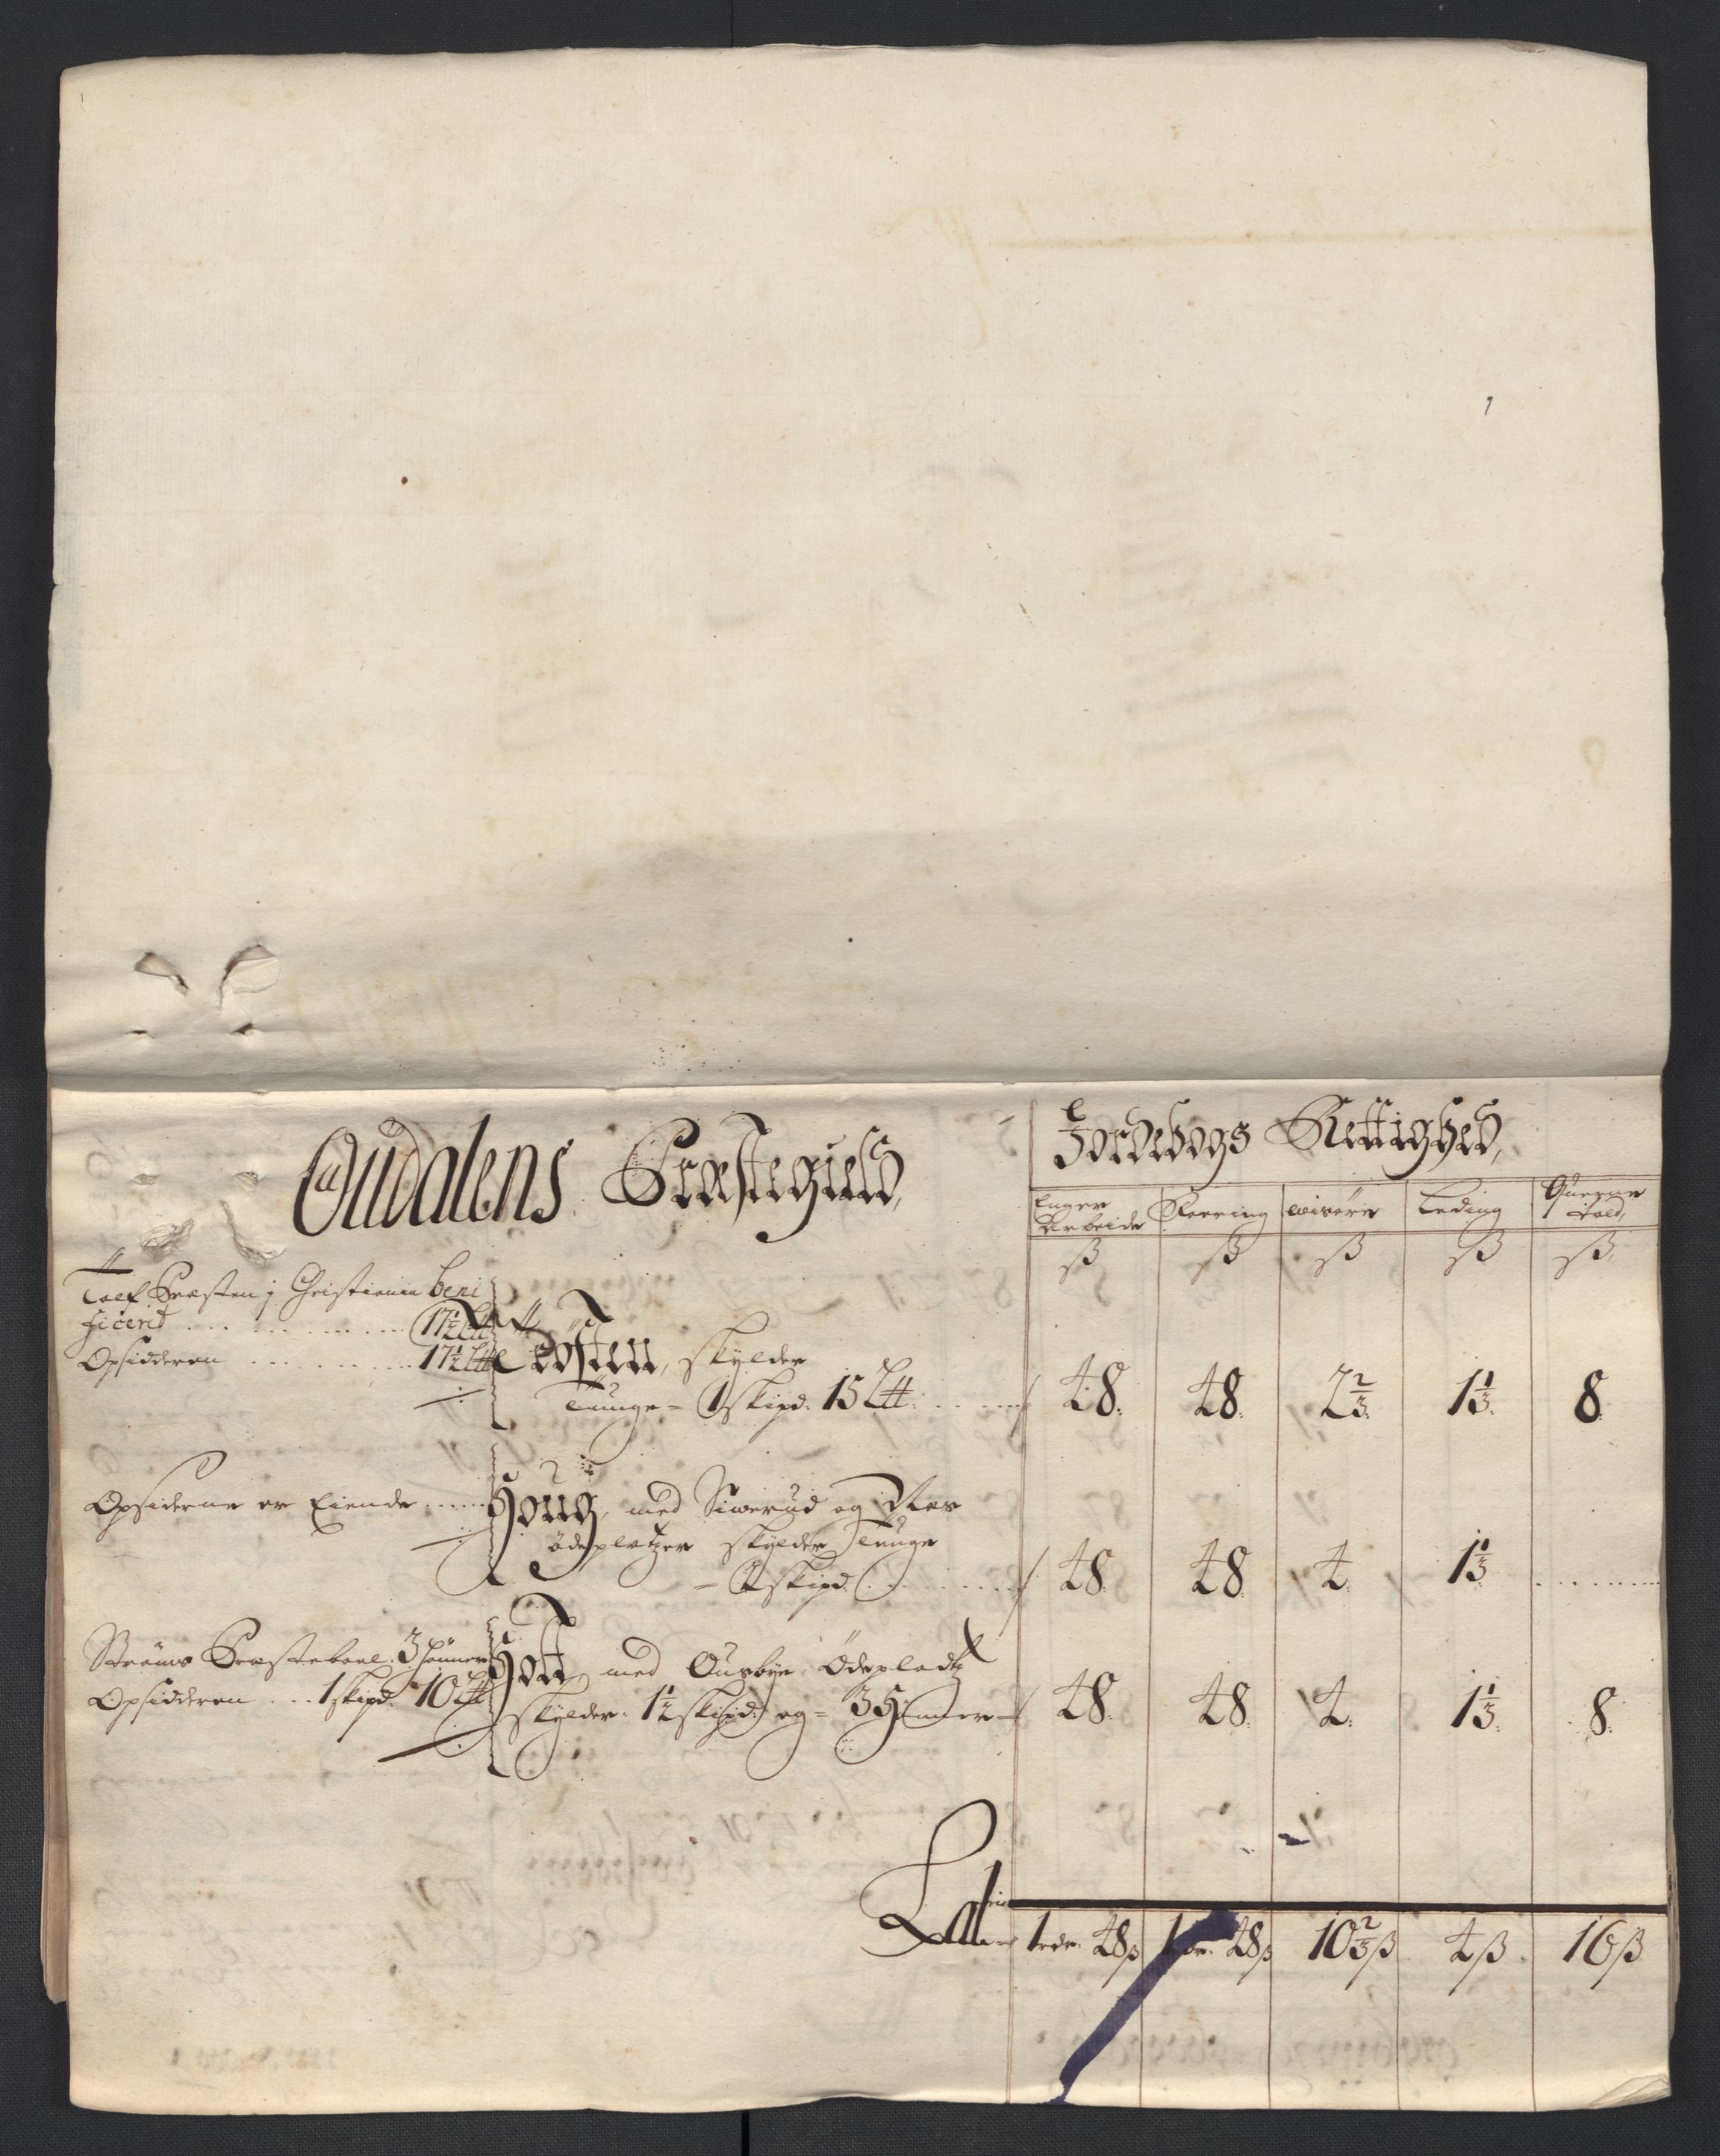 Oudalens Præstegield,
Jordebogs Rettighed,
Enger Arbeide
Foering
wisøre
Leding
Querne Told,
ß ß ß ß ß
Præsten j Christiania beni
ficerit 17½ L℔
Opsidderen 17½ L℔
Tøsten, skylder
Tunge = 1 skipd. 15 L℔
48. 48. 2⅔. 1⅓. 8.
Opsiderne er Eiende
Houg, med Siwerud og Næs
ødeplatzer skylder Tunge
2 skipd.
48 48 4. 1⅓
Strøms Præstebool. 3 Hunner
Opsidderen 1 skipd. 10 L℔
Hoff, med Ousbye, Ødepladtz
skylder. 1½ skipd: og = 3 Hunner
48. 48 4. 1⅓. 8.
Lateris
1 rdr. 48 ß 1 rdr. 48 ß 10⅔ ß 4 ß 16 ß